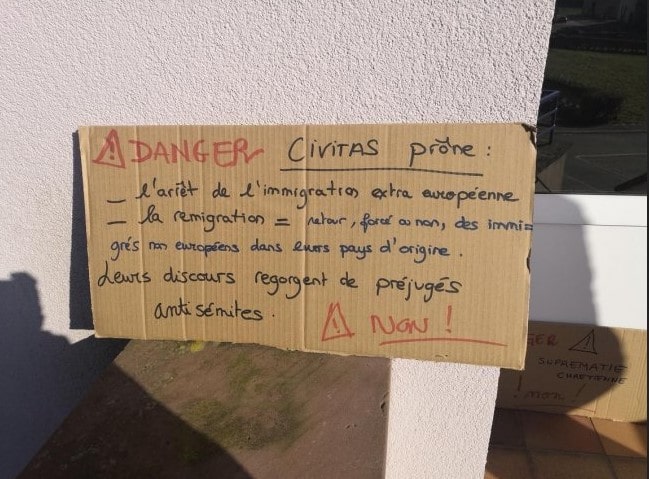 ⚠ DANGER CIVITAS prône :
_ l'arrêt de l'immigration extra européenne
_ la remigration = retour, forcé ou non, des immi=
grés non européens dans leurs pays d'origine.
Leurs discours regorgent de préjugés
antisémites. ⚠ NON !
GER ⚠
SUPREMATIE
CHRETIENNE
! NON !